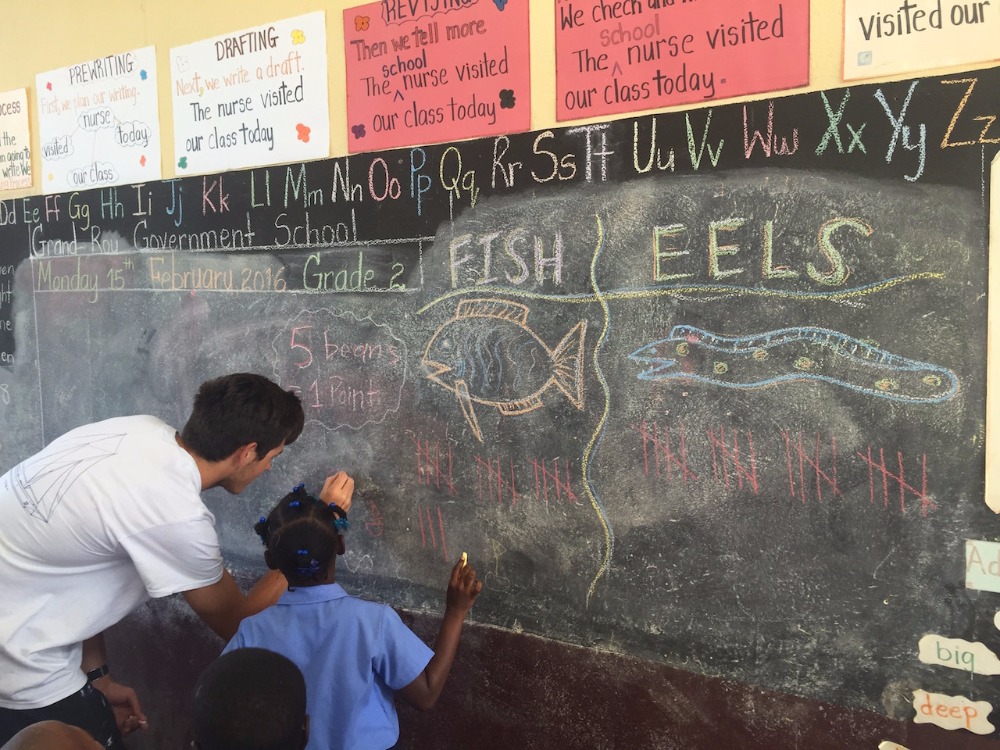 PREWRITING
First, we plan our writing.
nurse
visited
today
our class
DRAFTING
Next, we write a draft.
The nurse visited
our class today
REVISING
Then we tell more
school
The ^ nurse visited
our class today.
We check and
school
The ^ nurse visited
our class today.
visited our
Dd Ee Ff Gg Hh Ii Jj Kk Ll Mm Nn Oo Pp Qq Rr Ss Tt Uu Vv Ww Xx Yy Zz
Grand-Roy Government School
Monday 15th February 2016 Grade 2
FISH
EELS
5 beans
= 1 Point
Ad
big
deep